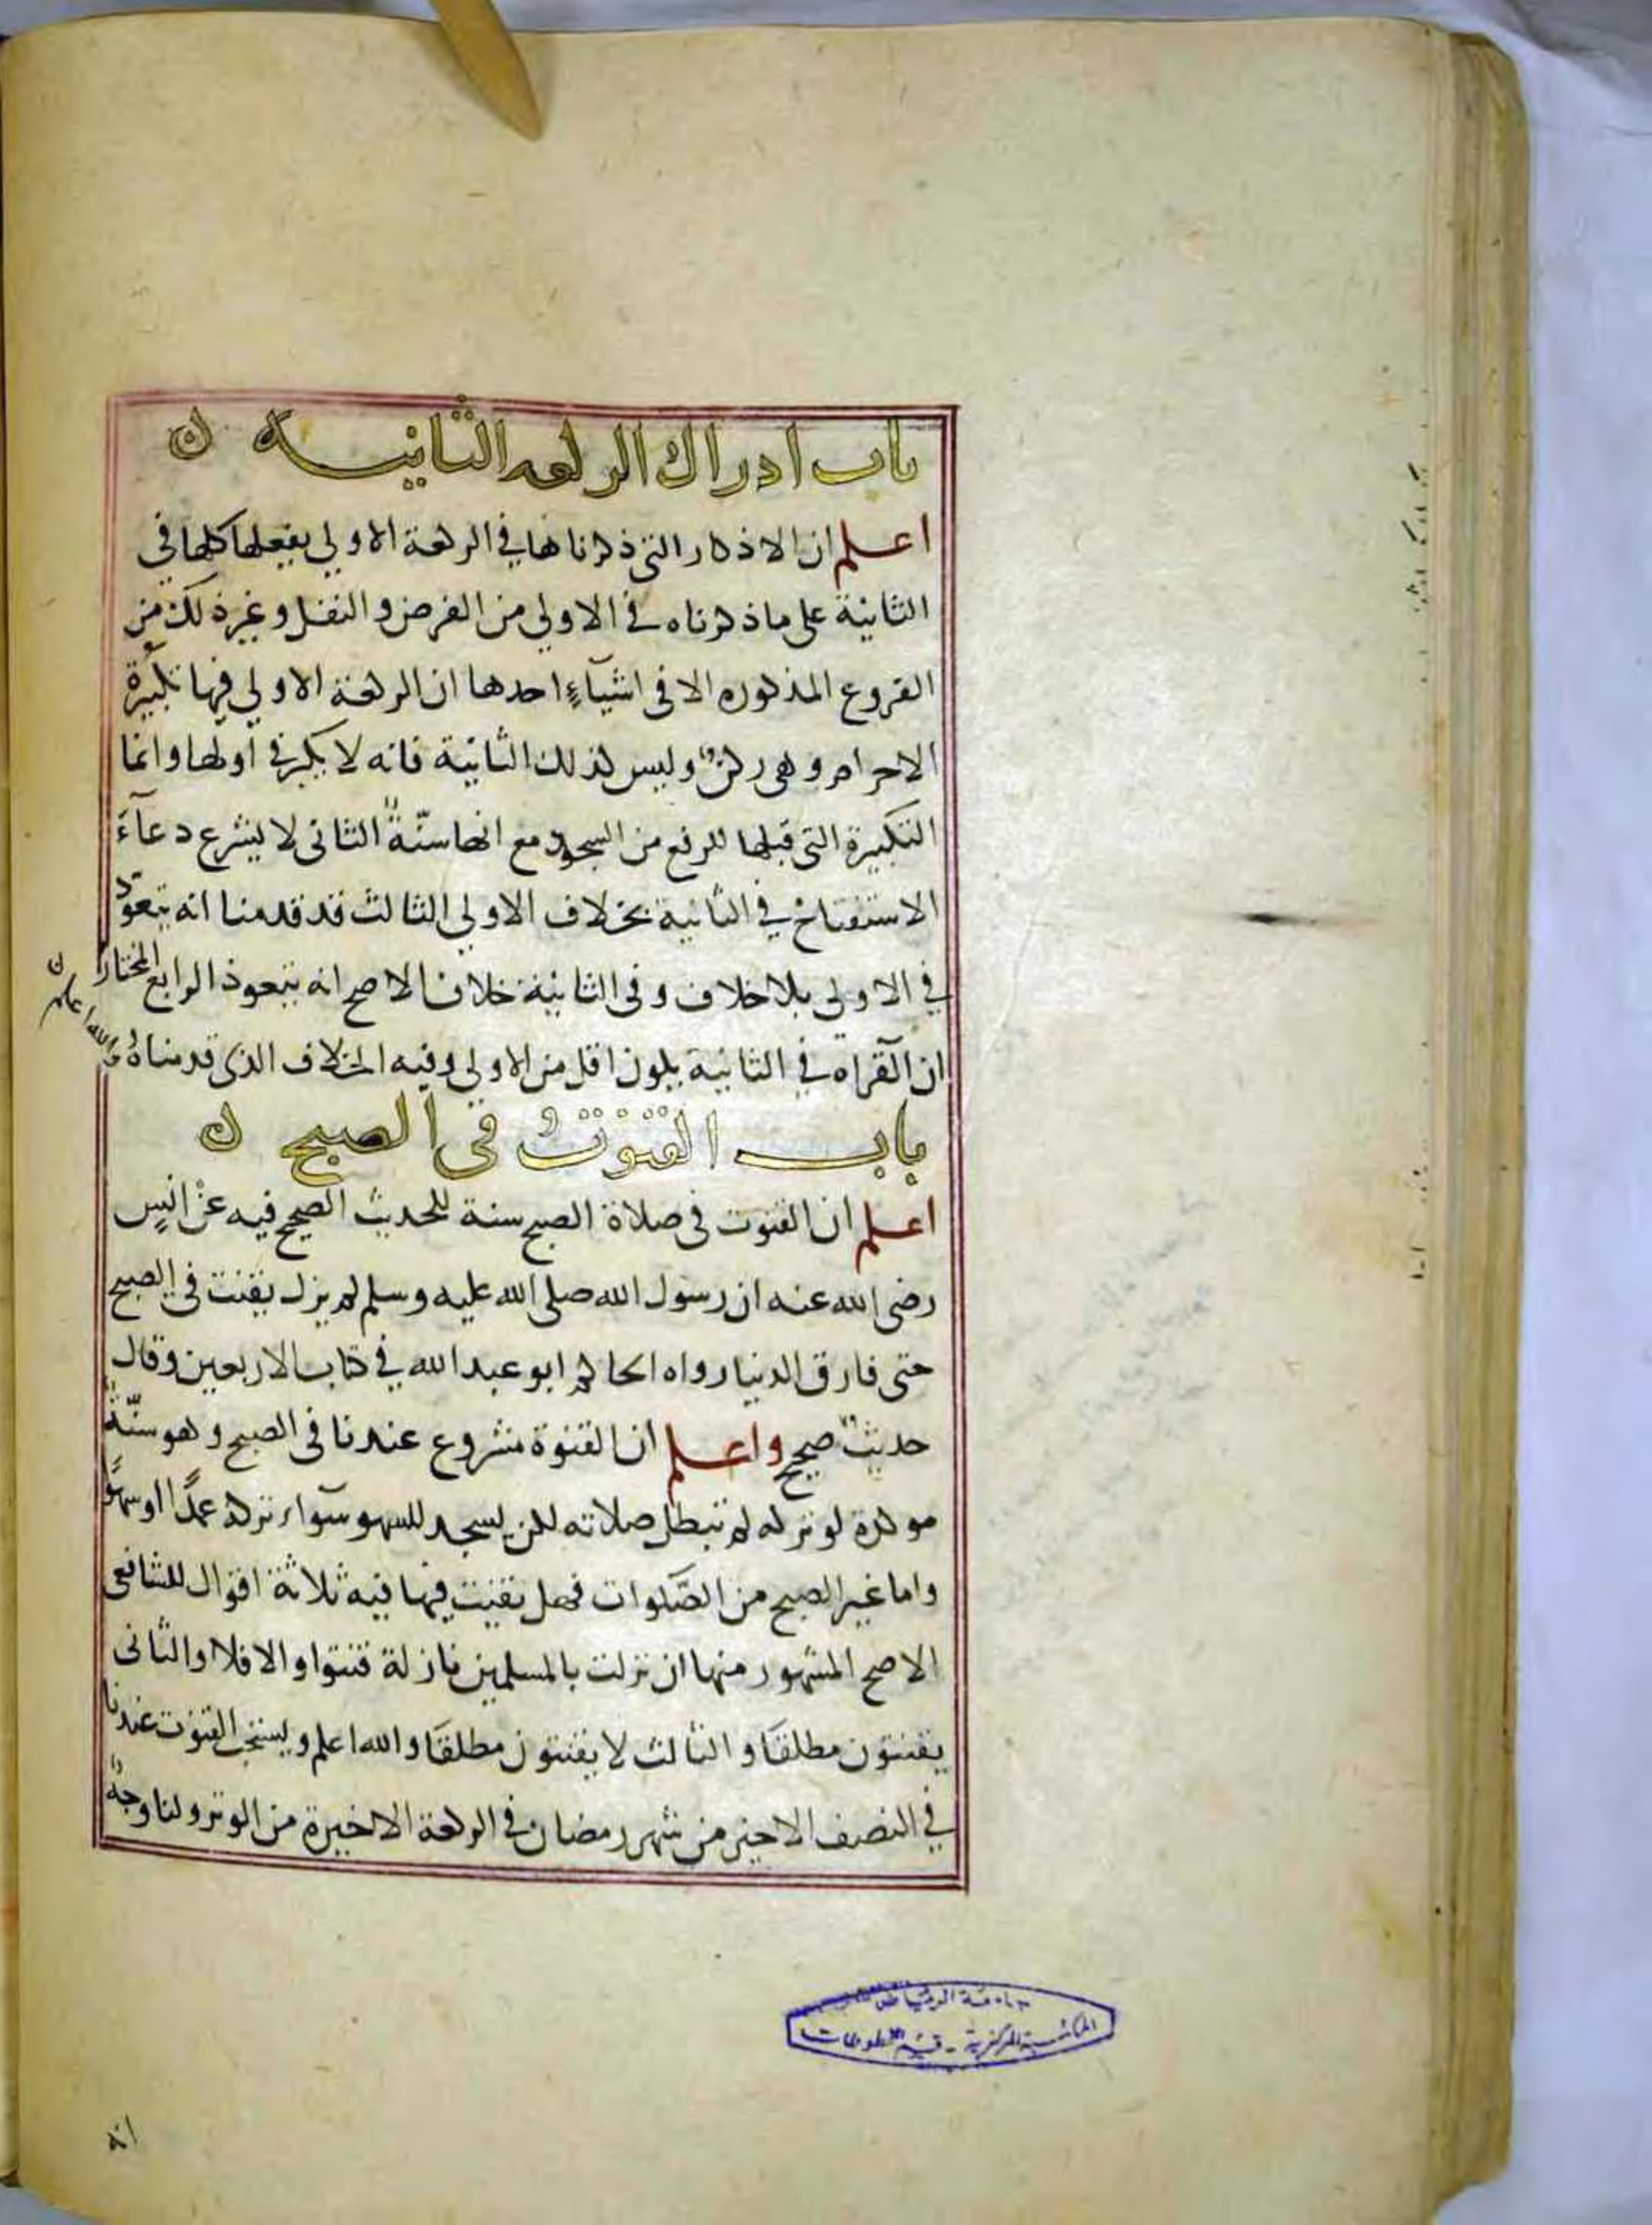 باب ادراك الركعه الثانيه ن
اعلم ان الاذكار التى ذكرناها في الركعة الاولي يفعلها كلها في
الثانية على ما ذكرناه في الاولي من الفرض و النفل و غير ذلك من
الفروع المذكوره الا فى اشيآءٍ احدها ان الركعة الاولي فيها تكبيرة
الاحرام و هى ركنٌ و ليس كذلك الثانية فانه لا يكبر في اولها و انما
التكبيرة التى قبلها للرفع من السجود مع انها سنّةٌ الثانى لا يشرع دعآء
الاستفتاح في الثانية بخلاف الاولي الثالث قد قدمنا انه يتعوذ
في الاولى بلا خلاف و فى الثانية خلاف الاصح انه يتعوذ الرابع المختار
ان القراه في الثانية يكون اقل من الاولى وفيه الخلاف الذى قدمناهُ والله اعلم ن
باب القنوت فى الصبح ن
اعلم ان القنوت فى صلاة الصبح سنة للحديث الصحيح فيه عن انسٍ
رضى الله عنه ان رسول الله صلى الله عليه وسلم لم يزل يقنت في الصبح
حتى فارق الدنيا رواه الحاكم ابو عبد الله في كتاب الاربعين وقال
حديثٌ صحيح واعلم ان القنوة مشروع عندنا فى الصبح و هو سنّةٌ
موكدة لو تركه لم تبطل صلاته لكن يسجد للسهو سوآء تركه عمدًا او سهوًا
واما غير الصبح من الصّلوات فهل يقنت فيها فيه ثلاثة اقوال للشافعى
الاصح المشهور منها ان نزلت بالمسلمين نازلة قنتوا و الا فلا والثانى
يقنتون مطلقًا و الثالث لا يقنتون مطلقًا و الله اعلم و يستحب القنوت عندنا
في النصف الاخير من شهر رمضان في الركعة الاخيرة من الوتر ولنا وجهٌ
جامعة الرياض
المكتبة المركزية - قسم المخطوطات
انه